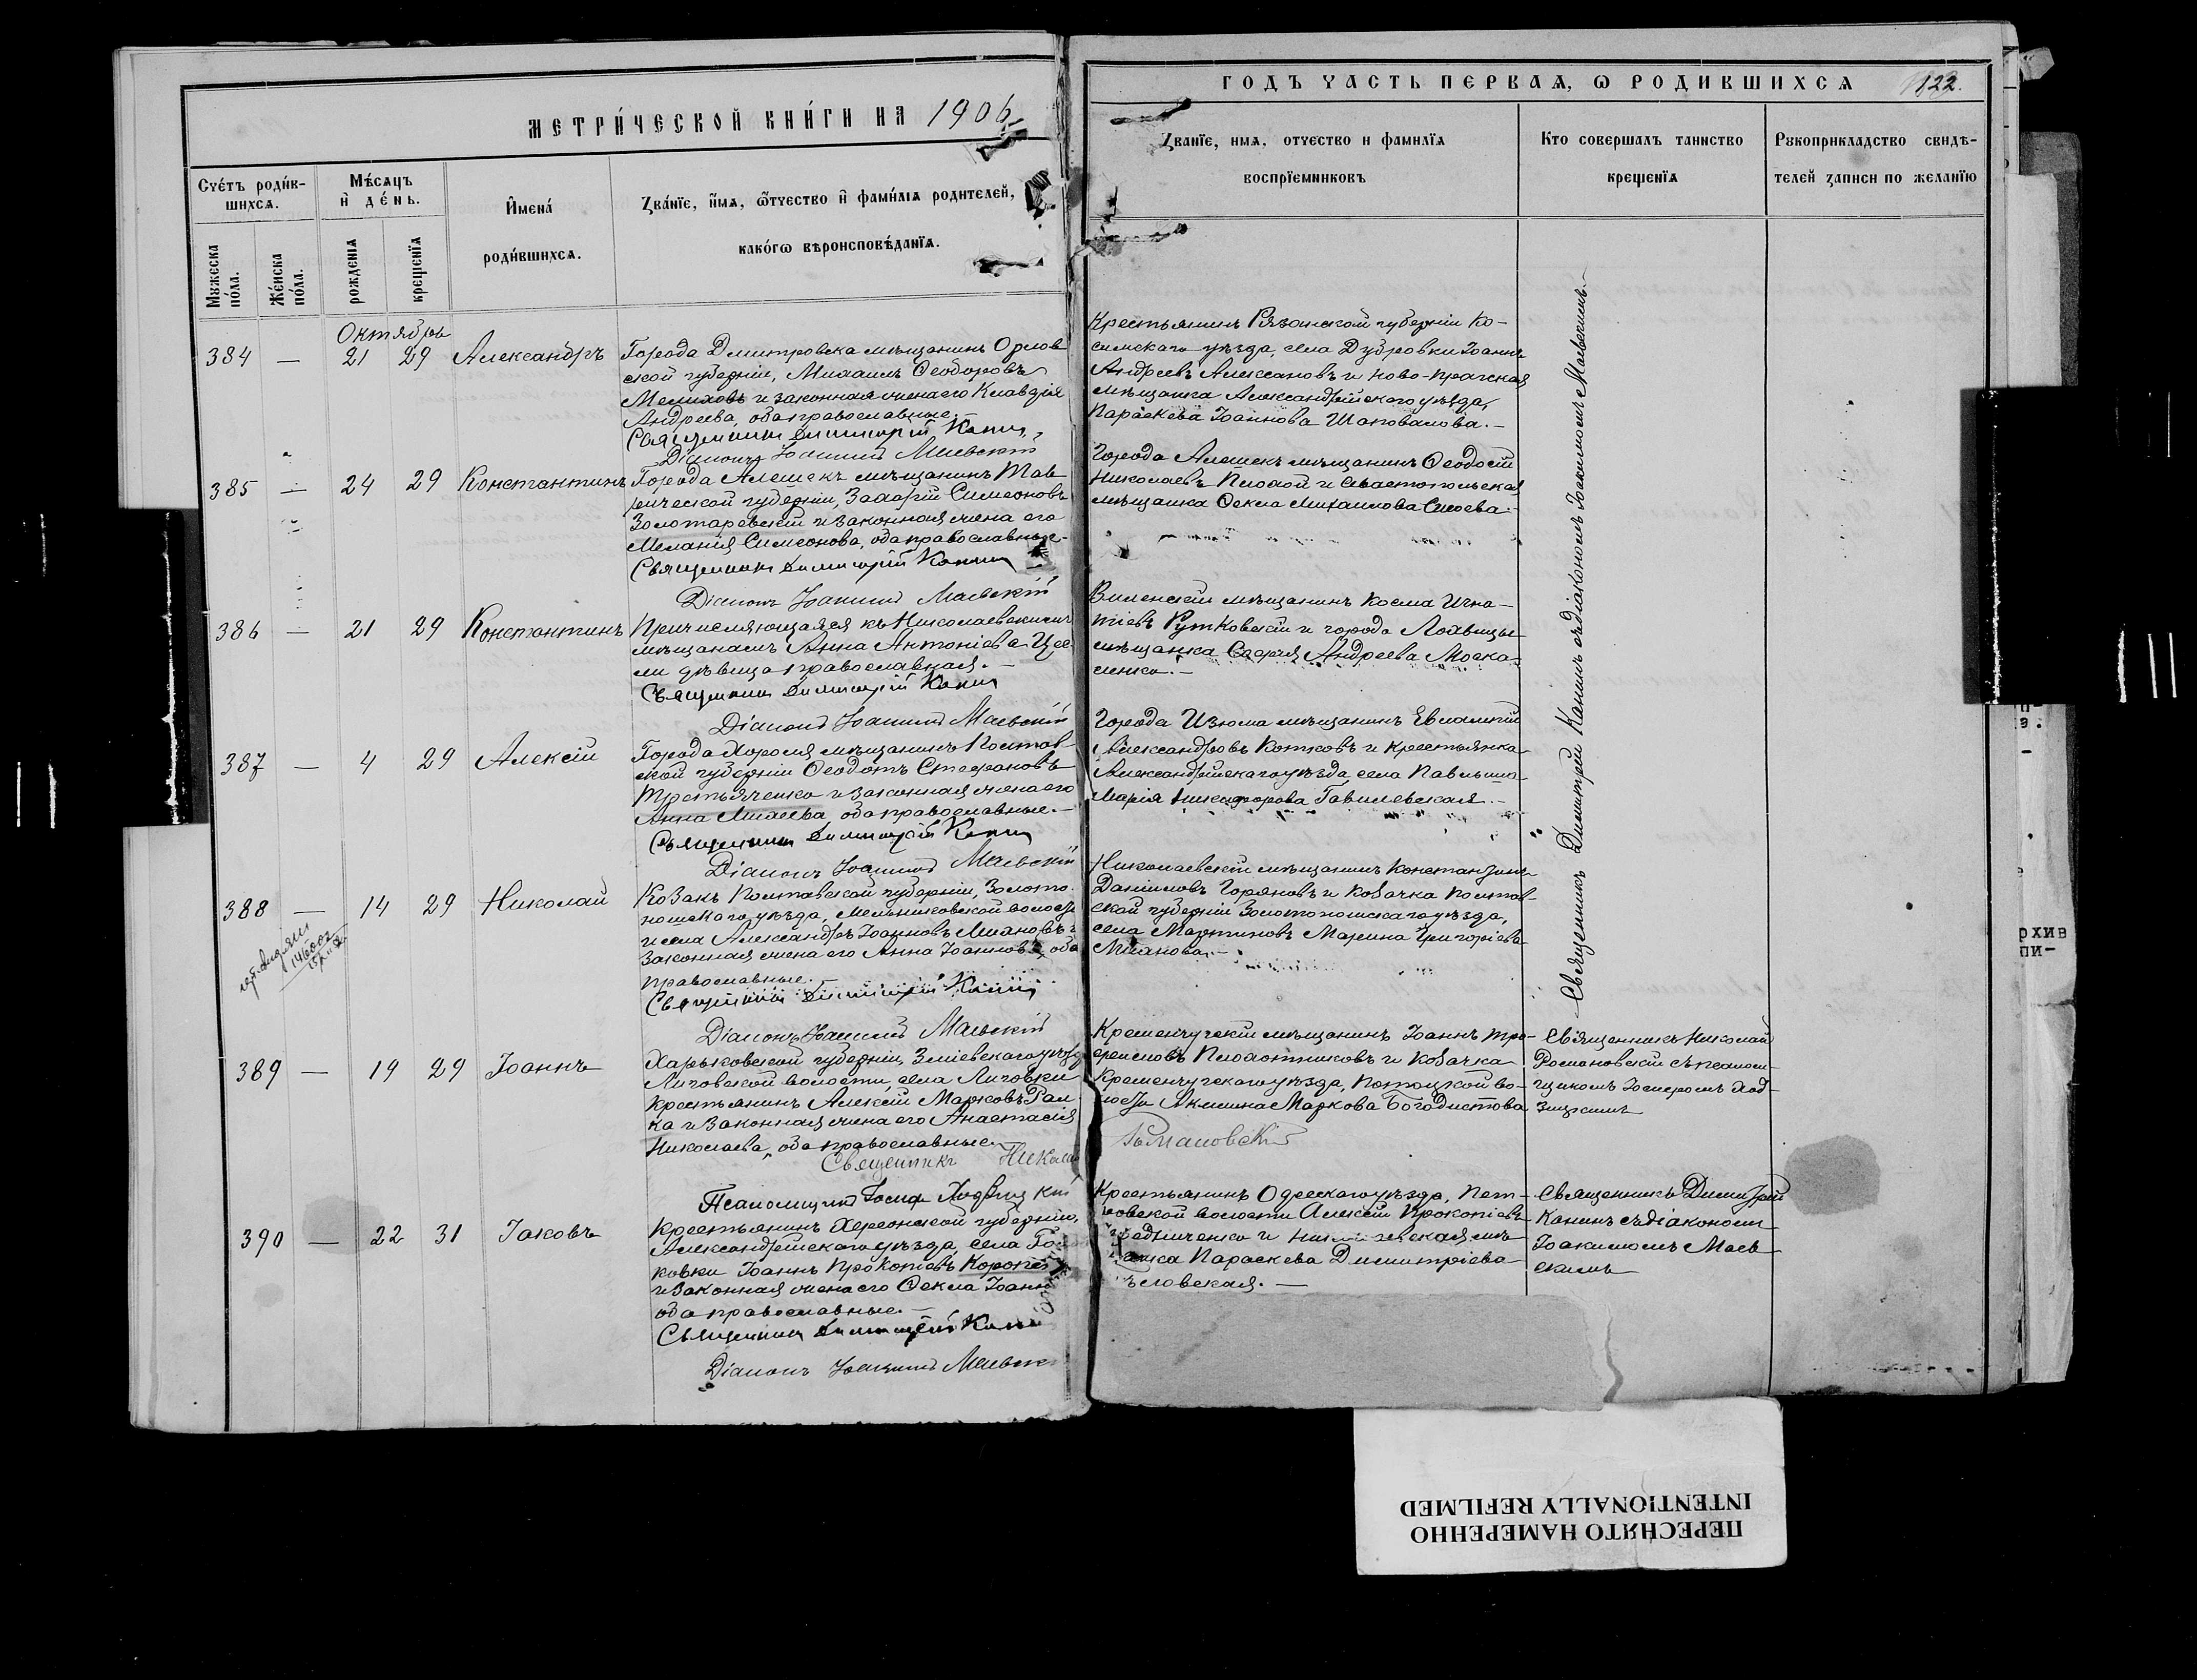 МЕТРИ́ЧЕСКОЙ КНИ́ГИ НА 1906
ГОДЪ ЧАСТЬ ПЕРВАѦ, Ѡ РОДИВШИХСѦ 122.
Счéтъ роди́в-
шихсѧ.
Мѣ́сѧцъ
и҆ де́нь.
И҆мена́
роди́вшихсѧ.
Зва́нїе, и҆́мѧ, ѻ҆́тчество и҆ фами́лїѧ родителей,
како́гѡ вѣроисповѣ́данїѧ.
Мꙋжеска
по́ла.
Же́нска
по́ла.
рожденїѧ
крещенїѧ
Званїе, имѧ, отчество и фамилїѧ
воспрїемниковъ
Кто совершалъ таинство
крещенїѧ
Рꙋкоприкладство свидѣ-
телей записи по желанїю
Октября
384 — 21 29 Александръ
Города Дмитровска мѣщанинъ Орлов
ской губерніи, Михаилъ Ѳеодоровъ
Мелиховъ и законная жена его Клавдія
Андреева, оба православные.—
Священникъ Димитрій Канинъ
Діаконъ Іоакимъ Маевскій
Крестьянинъ Рязанской губерніи Ка-
симскаго уѣзда, села Дубровки Іоаннъ
Андреевъ Алексановъ и Ново-Прагская
мѣщанка Александрійскаго уѣзда,
Параскева Іоаннова Шаповалова.—
Священникъ Димитрій Канинъ съ діакономъ Іоакимомъ Маевскимъ
385 — 24 29 Константинъ
Города Алешекъ мѣщанинъ Тав-
рической губерніи, Захарій Симеоновъ
Золотаревскій и законная жена его
Меланія Симеонова, оба православные.
Священникъ Димитрій Канинъ
Діаконъ Іоакимъ Маевскій
Города Алешекъ мѣщанинъ Ѳеодосій
Николаевъ Плохой и Севастопольская
мѣщанка Ѳекла Михаилова Сысоева.
386 — 21 29 Константинъ
Причисляющаяся къ Николаевскимъ
мѣщанамъ Анна Антоніева
дѣвица православная.—
Священникъ Димитрій Канинъ
Діаконъ Іоакимъ Маевскій
Виленскій мѣщанинъ Косма Игна-
тіевъ Рутковскій и города Лохвицы
мѣщанка Софія Андреева Моска-
ленко.—
387 — 4 29 Алексій
Города Хорола мѣщанинъ Полтав-
ской губерніи Ѳеодотъ Стефановъ
Третьяченко и законная жена его
Анна Моисеева, оба православные.—
Священникъ Димитрій Канинъ
Діаконъ Іоакимъ Маевскій
Города Изюма мѣщанинъ Евлампій
Александровъ Котковъ и крестьянка
Александрійскаго уѣзда, села Павлыша
Марія Никифорова Гавилевская.—
388 — 14 29 Николай
Козакъ Полтавской губерніи, Золото-
ношскаго уѣзда, Мельниковской волости
и села Александръ Іоанновъ и
законная жена его Анна Іоаннова, оба
православные.—
Священникъ Димитрій Канинъ
Діаконъ Іоакимъ Маевскій
Николаевскій мѣщанинъ Константинъ
Даніиловъ Горяновъ и козачка Полтав-
ской губерніи Золотоношскаго уѣзда,
села Мартиновъ Марина Григоріева
389 — 19 29 Іоаннъ
Харьковской губерніи, Зміевскаго уѣзда
Лиговской волости, села Лиговки
крестьянинъ Алексій Марковъ
и законная жена его Анастасія
Николаева, оба православные.
Священникъ Николай
Романовскій
Псаломщикъ Іосифъ
Кременчугскій мѣщанинъ Іоаннъ Тро-
фимовъ Плохотниковъ и козачка
Кременчугскаго уѣзда, Потоцкой во-
лости Акилина Маркова Богодистова
Священникъ Николай
Романовскій съ псалом-
щикомъ Іосифомъ
390 — 22 31 Іаковъ
Крестьянинъ Херсонской губерніи,
Александрійскаго уѣзда, села
ковки Іоаннъ Прокопіевъ
и законная жена его Ѳекла Іоанн
оба православные.—
Священникъ Димитрій Канинъ
Діаконъ Іоакимъ Маевскій
Крестьянинъ Одесскаго уѣзда, Пет-
ровской волости Алексій Прокопіевъ
и
Параскева Димитріева
Священникъ Димитрій
Канинъ съ діакономъ
Іоакимомъ Маев-
скимъ
ПЕРЕСНЯТО НАМЕРЕННО
INTENTIONALLY REFILMED